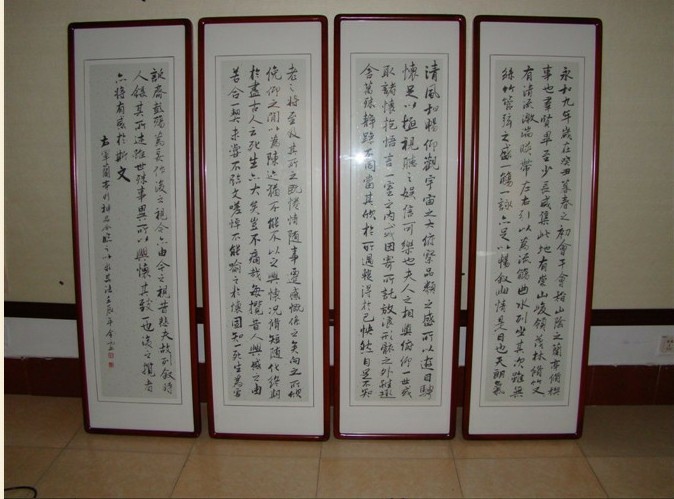 永和九年歲在癸丑暮春之初會于會稽山陰之蘭亭脩禊
事也羣賢畢至少長咸集此地有崇山峻領茂林脩竹又
有清流激湍映帶左右引以為流觴曲水列坐其次雖無
絲竹管弦之盛一觴一詠亦足以暢敘幽情是日也天朗氣
清風和暢仰觀宇宙之大俯察品類之盛所以遊目騁
懷足以極視聽之娛信可樂也夫人之相與俯仰一世或
取諸懷抱悟言一室之內或因寄所託放浪形骸之外雖趣
舍萬殊靜躁不同當其欣於所遇暫得於己快然自足不知
老之將至及其所之既惓情隨事遷感慨係之矣向之所欣
俛仰之間以為陳迹猶不能不以之興懷況脩短隨化終期
於盡古人云死生亦大矣豈不痛哉每攬昔人興感之由
若合一契未嘗不臨文嗟悼不能喻之於懷固知一死生為虛
誕齊彭殤為妄作後之視今亦由今之視昔悲夫故列敘時
人錄其所述雖世殊事異所以興懷其致一也後之攬者
亦將有感於斯文
右軍蘭亭